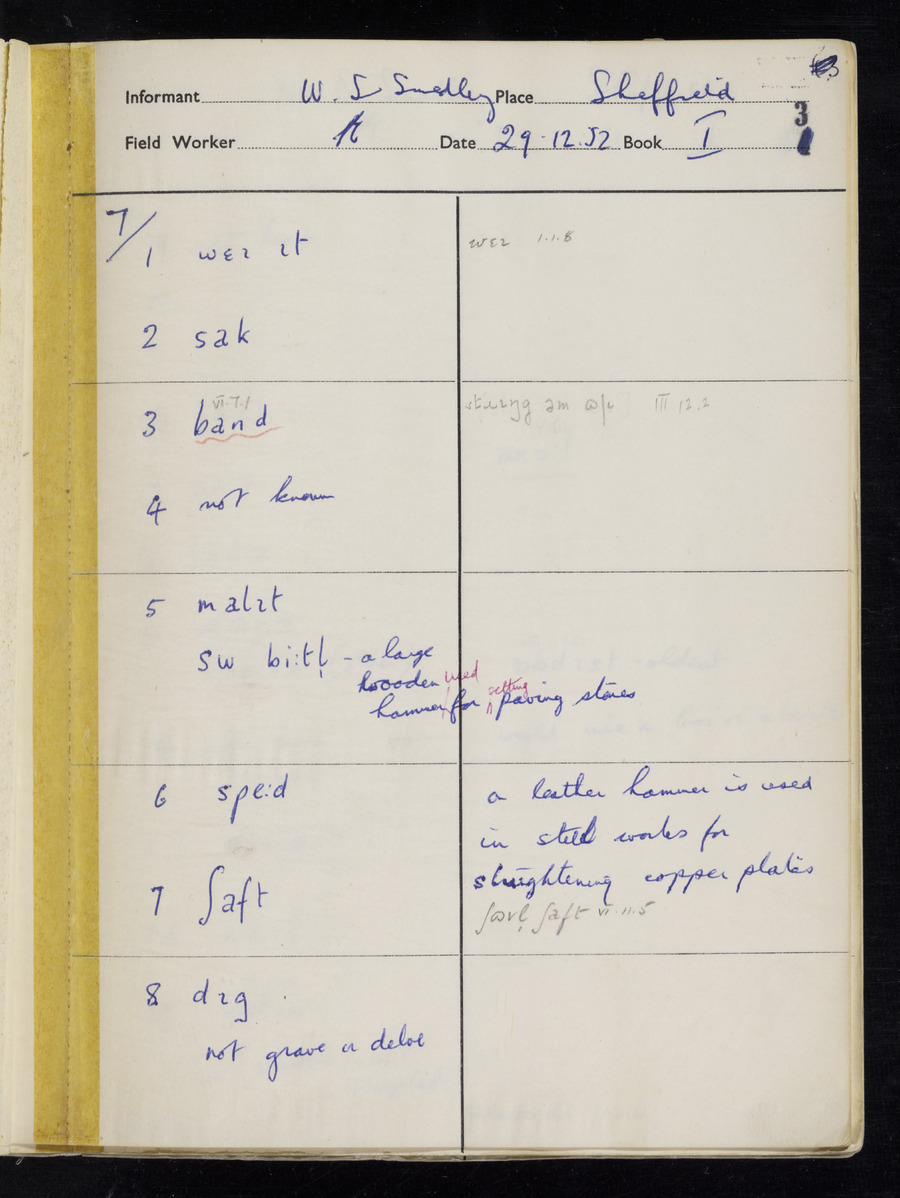 Informant W. S Smedley Place Sheffield
3
Field Worker A Date 29.12.52 Book I
7/
1 wɛɪ ɪt
wɛɪ 1.1.8
2 sak
VI.7.1
3 band
III 12.2
4 not known
5 malɪt
sw bi:tl̩ - a large
wooden used
hammer for setting paving stones
6 spe:d
a leather hammer is used
in steel works for
straightening copper plates
7 ʃaft
ʃɒvl̩ ʃaft VI.11.5
8 dɪg
not grave or delve